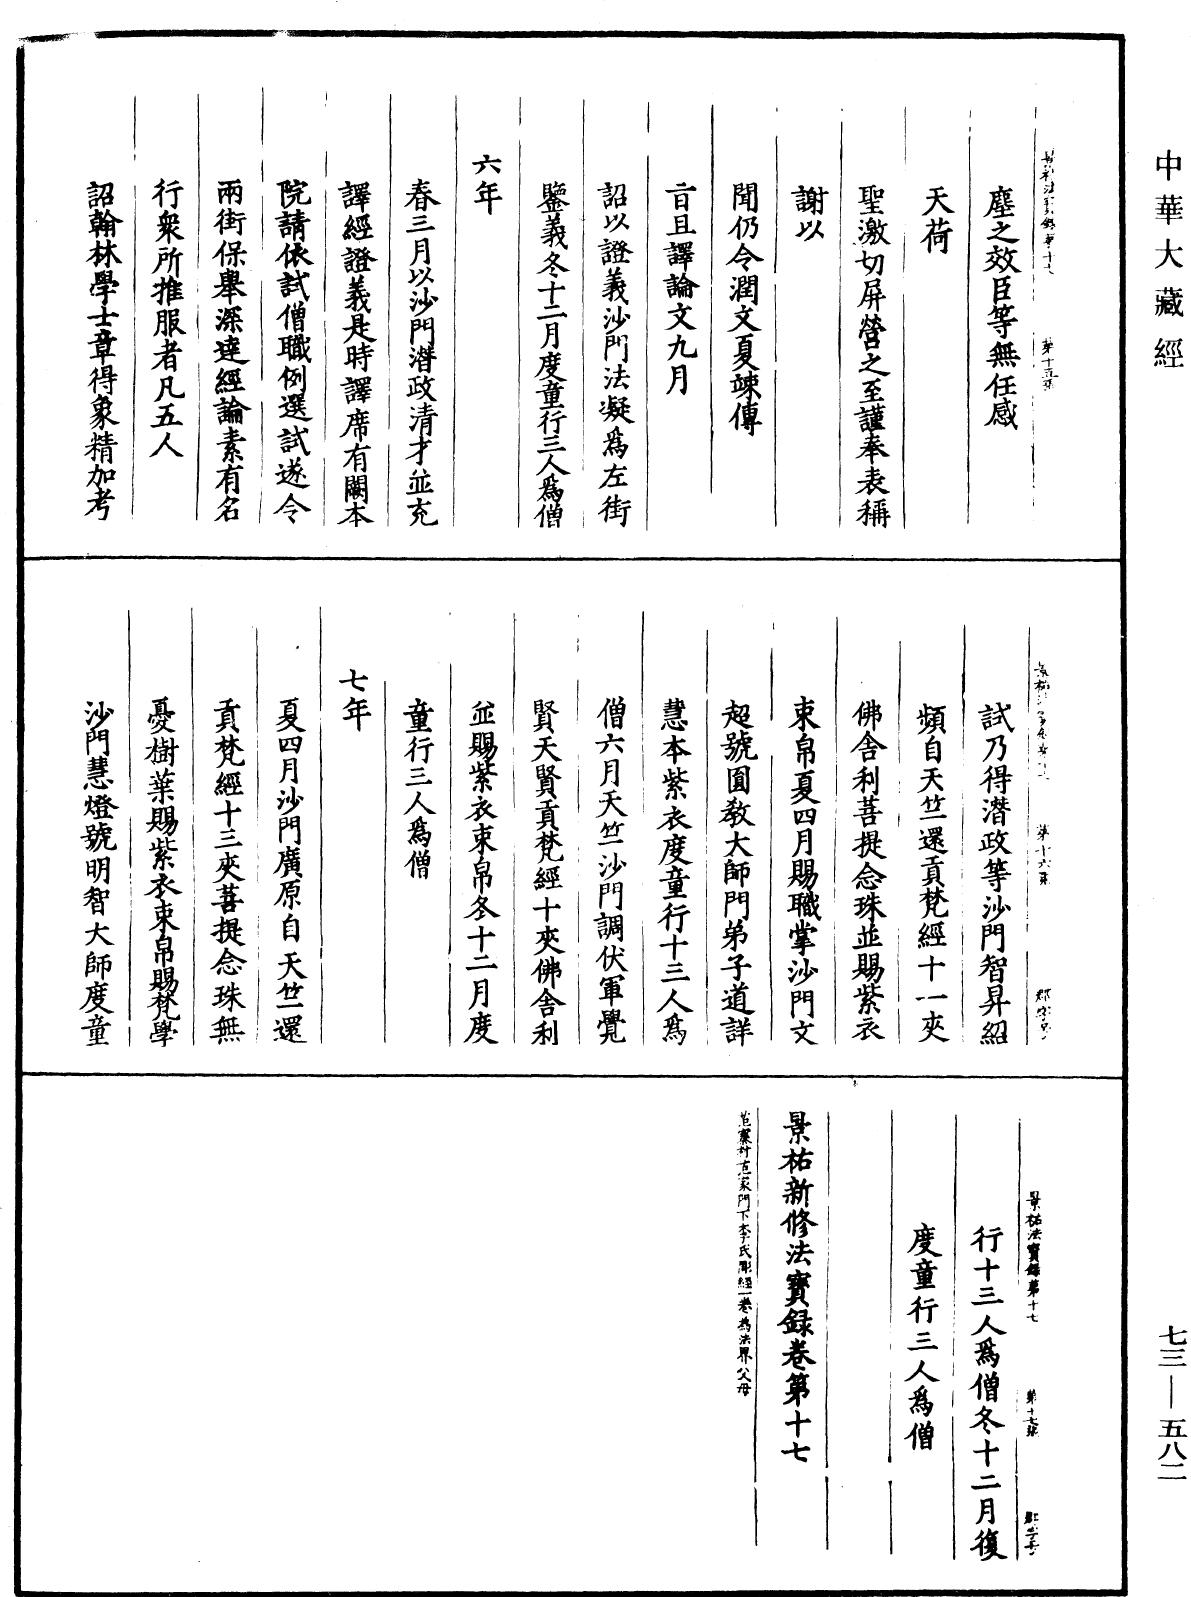 中華大藏經
塵之效臣等無任感
天荷
聖激切屏營之至謹奉表稱
謝以
聞仍令潤文夏竦傳
旨且譯論文九月
詔以證義沙門法凝爲左街
鑒義冬十二月度童行三人爲僧
六年
春三月以沙門潛政清才並充
譯經證義是時譯席有闕本
院請依試僧職例選試遂令
兩街保舉深達經論素有名
行衆所推服者凡五人
詔翰林學士章得象精加考
第十六張
試乃得潛政等沙門智昇紹
頻自天竺還貢梵經十一夾
佛舍利菩提念珠並賜紫衣
束帛夏四月賜職掌沙門文
超號圓教大師門弟子道詳
慧本紫衣度童行十三人爲
僧六月天竺沙門調伏軍覺
賢天賢貢梵經十夾佛舍利
並賜紫衣束帛冬十二月度
童行三人爲僧
七年
夏四月沙門廣原自天竺還
貢梵經十三夾菩提念珠無
憂樹葉賜紫衣束帛賜梵學
沙門慧燈號明智大師度童
景祐法寶録第十七 第十七張
行十三人爲僧冬十二月復
度童行三人爲僧
景祐新修法寶録卷第十七
范寨村范家門下李氏彫經一卷爲法界父母
七三—五八二